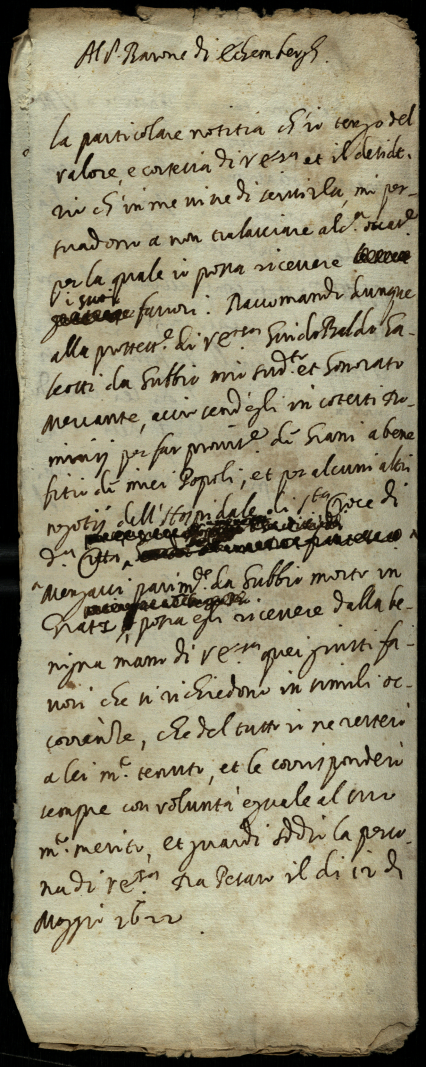 Al S.r Barone di Echembergh.
la particolare notitia ch'io tengo del
valore, e cortesia di V.S. et il deside-
rio ch'in me vive di servirla, mi per-
suadono a non tralasciare alc.a
per la quale io possa ricevere
i suoi favori. Raccomando dunque
alla prottett.e di V.S. Guido Baldo Ga-
leotti da Gubbio mio sud.to et honorato
Mercante, acciò
per far provis.e di Grani a bene
fitio di miei Popoli, et per alcuni altri
negotij dell'Hospidale di S.ta Croce di
d.a Città,
da Gubbio morto in
Gratz, possa egli ricevere dalla be-
nigna mano di V.S. quei giusti fa-
vori che si richiedono in simili oc-
correnze, che del tutto io ne resterò
a lei m.o tenuto, et le corrisponderò
sempre con volontà eguale al suo
m.o merito, et guardi Iddio la perso-
na di V.S. Da Pesaro il di 12 di
Maggio 1622